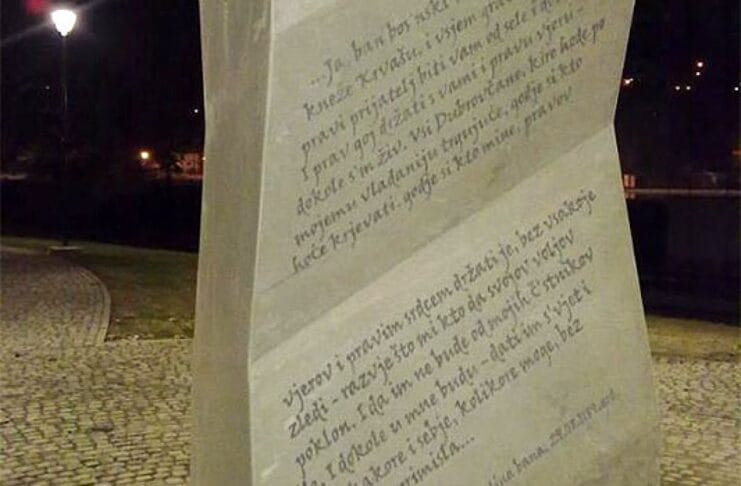 ...Ja, ban bos'nski
kneže Krvašu, i vsjem gra
pravi prijatelj biti vam od sele i do
I prav goj držati s vami i pravu vjeru -
dokole s'm živ. Vsi Dubrovčane, kire hode po
mojemu vladaniju trgujuće, godje si kto
hoće krjevati, godje si kto mine, pravov
vjerov i pravim srdcem držati je, bez vsakoje
zledi - razvje što mi kto da svojov voljov
poklon. I da im ne bude od mojih č'stnikov
I dokole u mne budu - dati im s'vjet i
kakore i sebje, kolikore moge, bez
primisla...
lina bana, 29.08.1189.god.